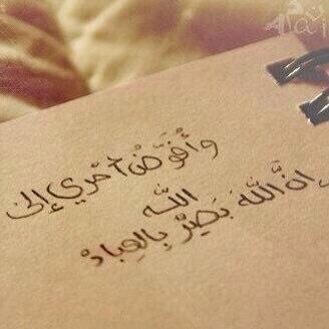 وأُفَوِّضُ أَمْرِي إِلَى
الله
إِنَّ اللَّهَ بَصِيرٌ بِالعِبادْ